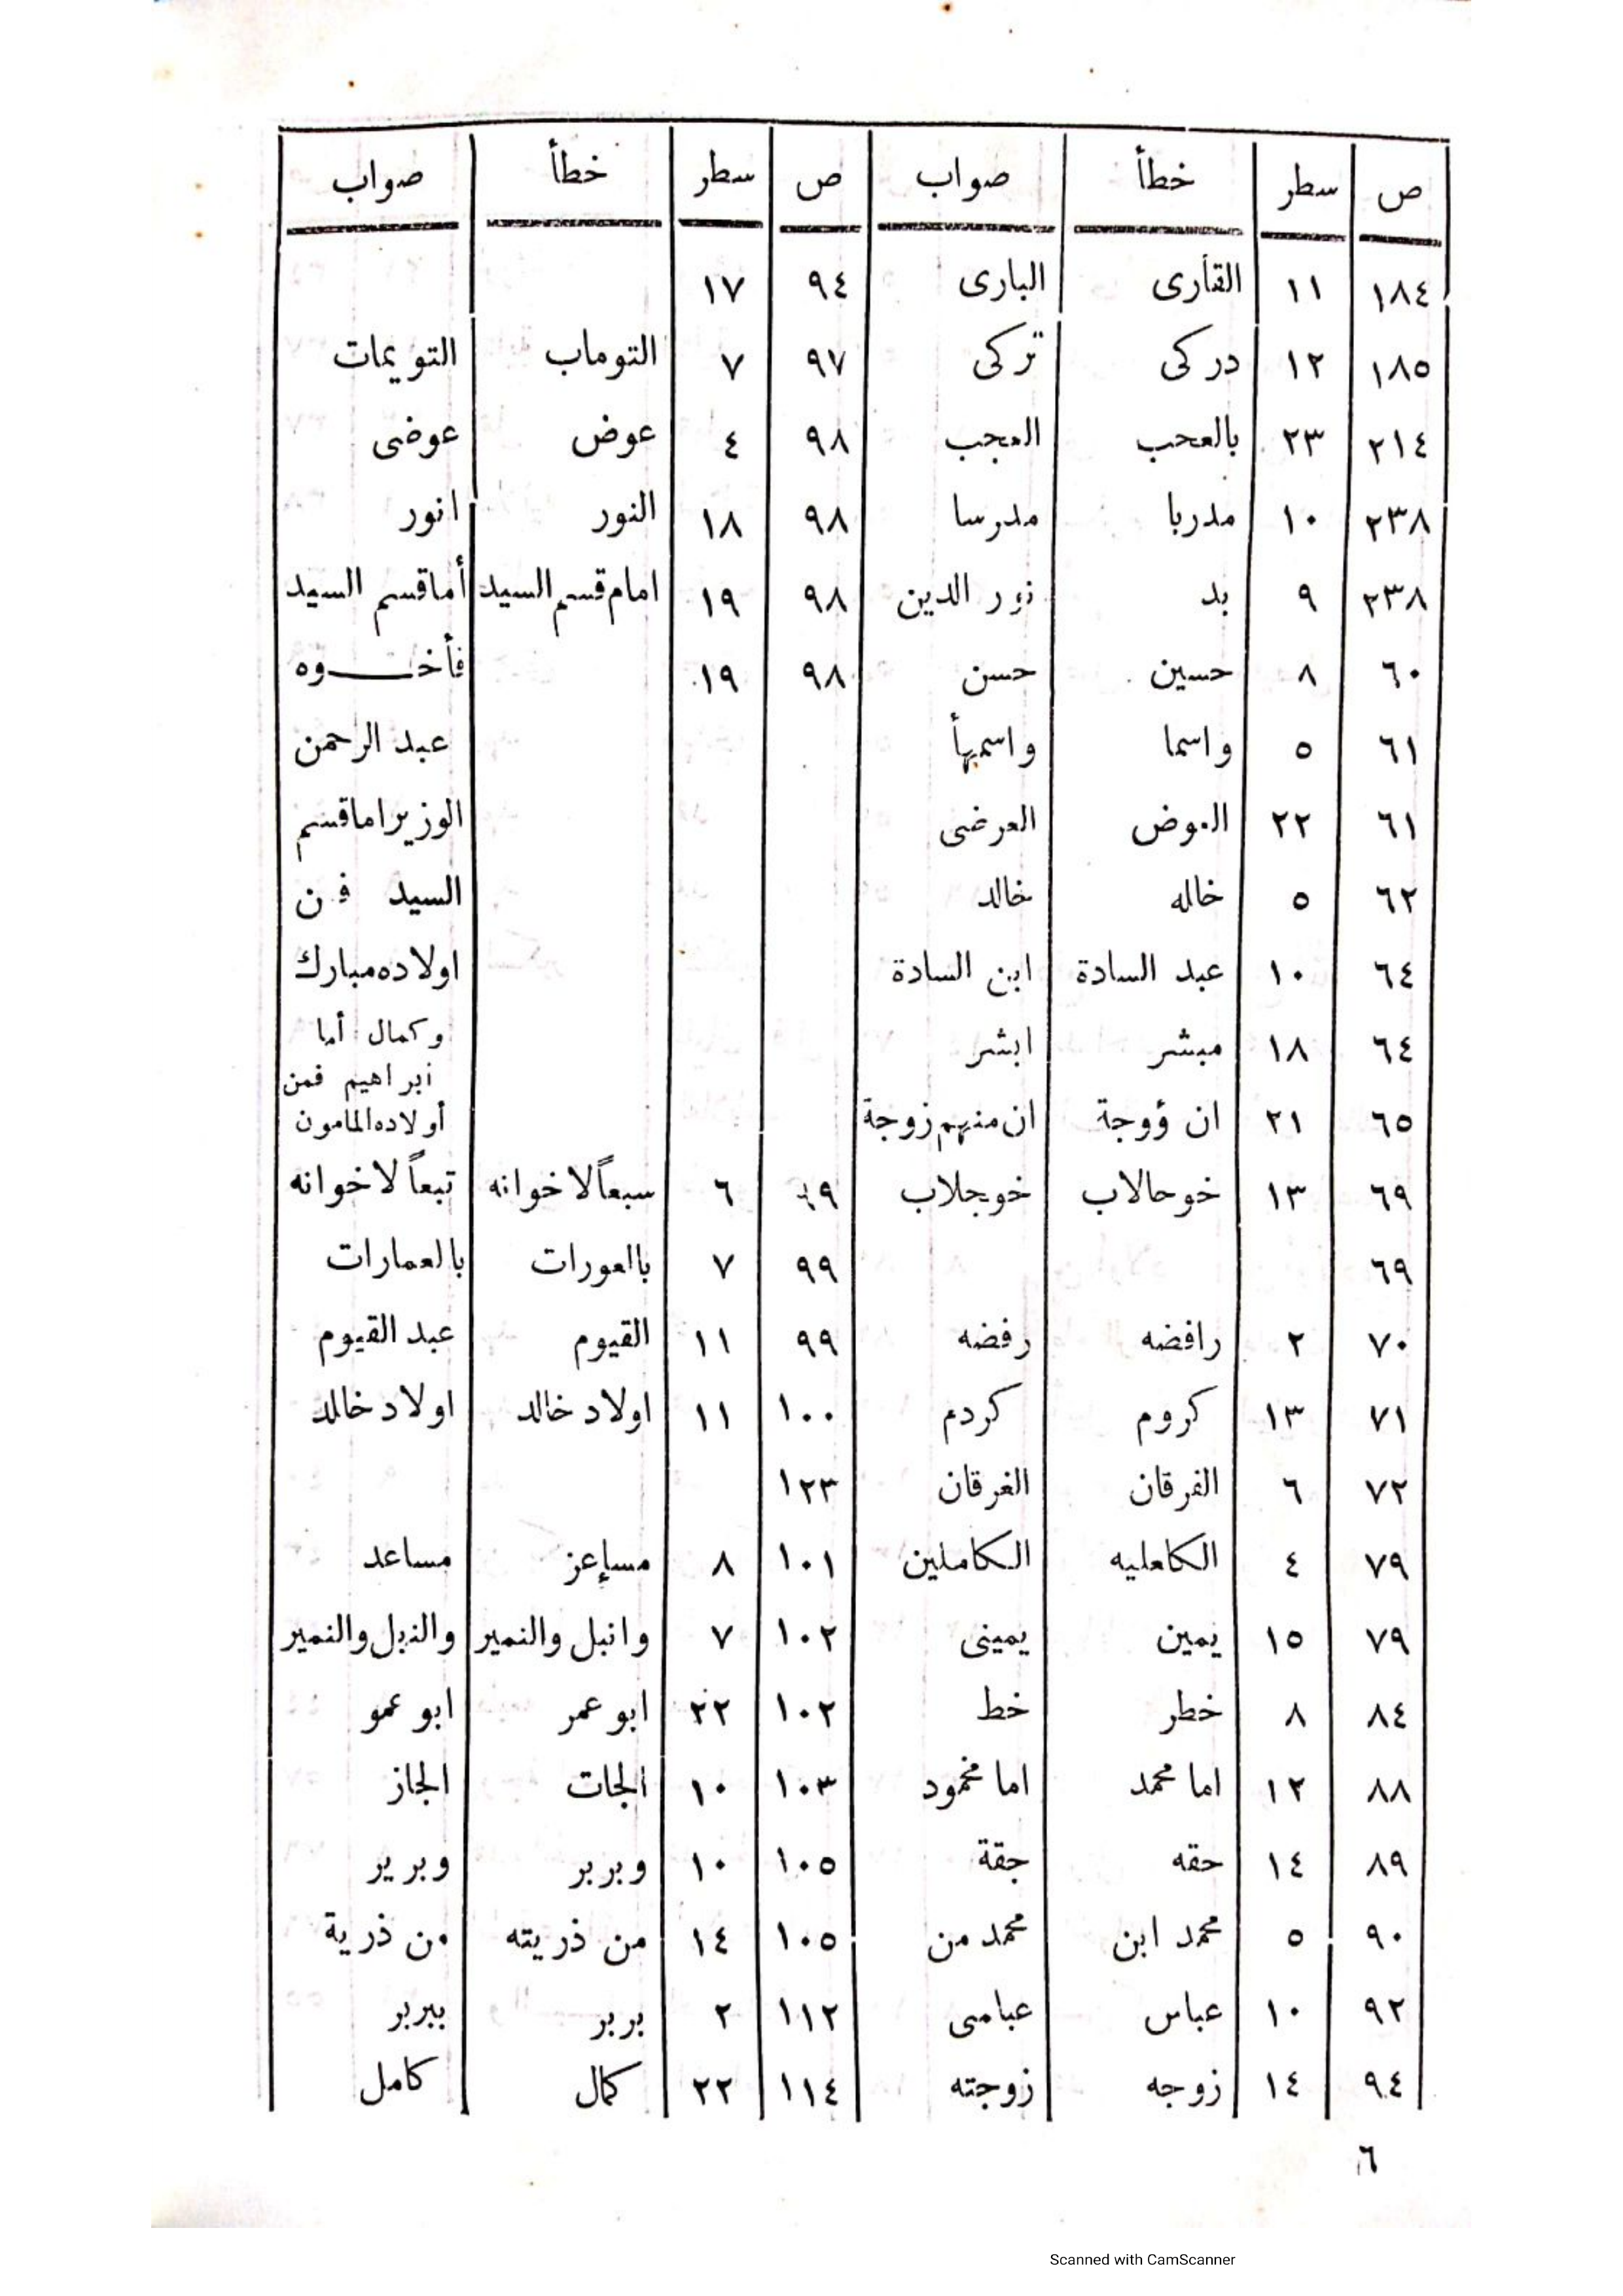 ص سطر خطأ صواب ص سطر خطأ صواب
١٨٤ ١١ القأرى البارى ٩٤ ١٧
١٨٥ ١٢ دركى تركى ٩٧ ٧ التوماب التويمات
٢١٤ ٢٣ بالعحب العجب ٩٨ ٤ عوض عوضى
٢٣٨ ١٠ مدربا مدرسا ٩٨ ١٨ النور انور
٢٣٨ ٩ بد نور الدين ٩٨ ١٩ امام قسم السيد أماقسم السيد
٦٠ ٨ حسين حسن ٩٨ ١٩ فأخـــوه
٦١ ٥ واسما واسمهأ عبد الرحمن
٦١ ٢٢ العوض العرضى الوزير اماقسم
٦٢ ٥ خاله خالد السيد فن
٦٤ ١٠ عبد السادة ابن السادة اولاده مبارك
٦٤ ١٨ مبشر ابشر وكمال أما
ابراهيم فمن
٦٥ ٢١ ان ؤوجة ان منهم زوجة أولاده المامون
٦٩ ١٣ خوحالاب خوجلاب ٩٩ ٦ سبعاً لاخوانه تبعاً لاخوانه
٦٩ ٩٩ ٧ بالعورات بالعمارات
٧٠ ٢ رافضه رفضه ٩٩ ١١ القيوم عبد القيوم
٧١ ١٣ كروم كردم ١٠٠ ١١ اولاد خالد اولاد خالد
٧٢ ٦ الفرقان الغرقان ١٢٣
٧٩ ٤ الكاعليه الكاملين ١٠١ ٨ مسإعز مساعد
٧٩ ١٥ يمين يمينى ١٠٢ ٧ وانبل والنمير والنبل والنمير
٨٤ ٨ خطر خط ١٠٢ ٢٢ ابو عمر ابو عمو
٨٨ ١٢ اما محمد اما محمود ١٠٣ ١٠ الجات الجاز
٨٩ ١٤ حقه جقة ١٠٥ ١٠ وبربر وبرير
٩٠ ٥ محمد ابن محمد من ١٠٥ ١٤ من ذريته من ذرية
٩٢ ١٠ عباس عباسى ١١٢ ٢ بربر ببربر
٩٤ ١٤ زوجه زوجته ١١٤ ٢٢ كمال كامل
٦
Scanned with CamScanner